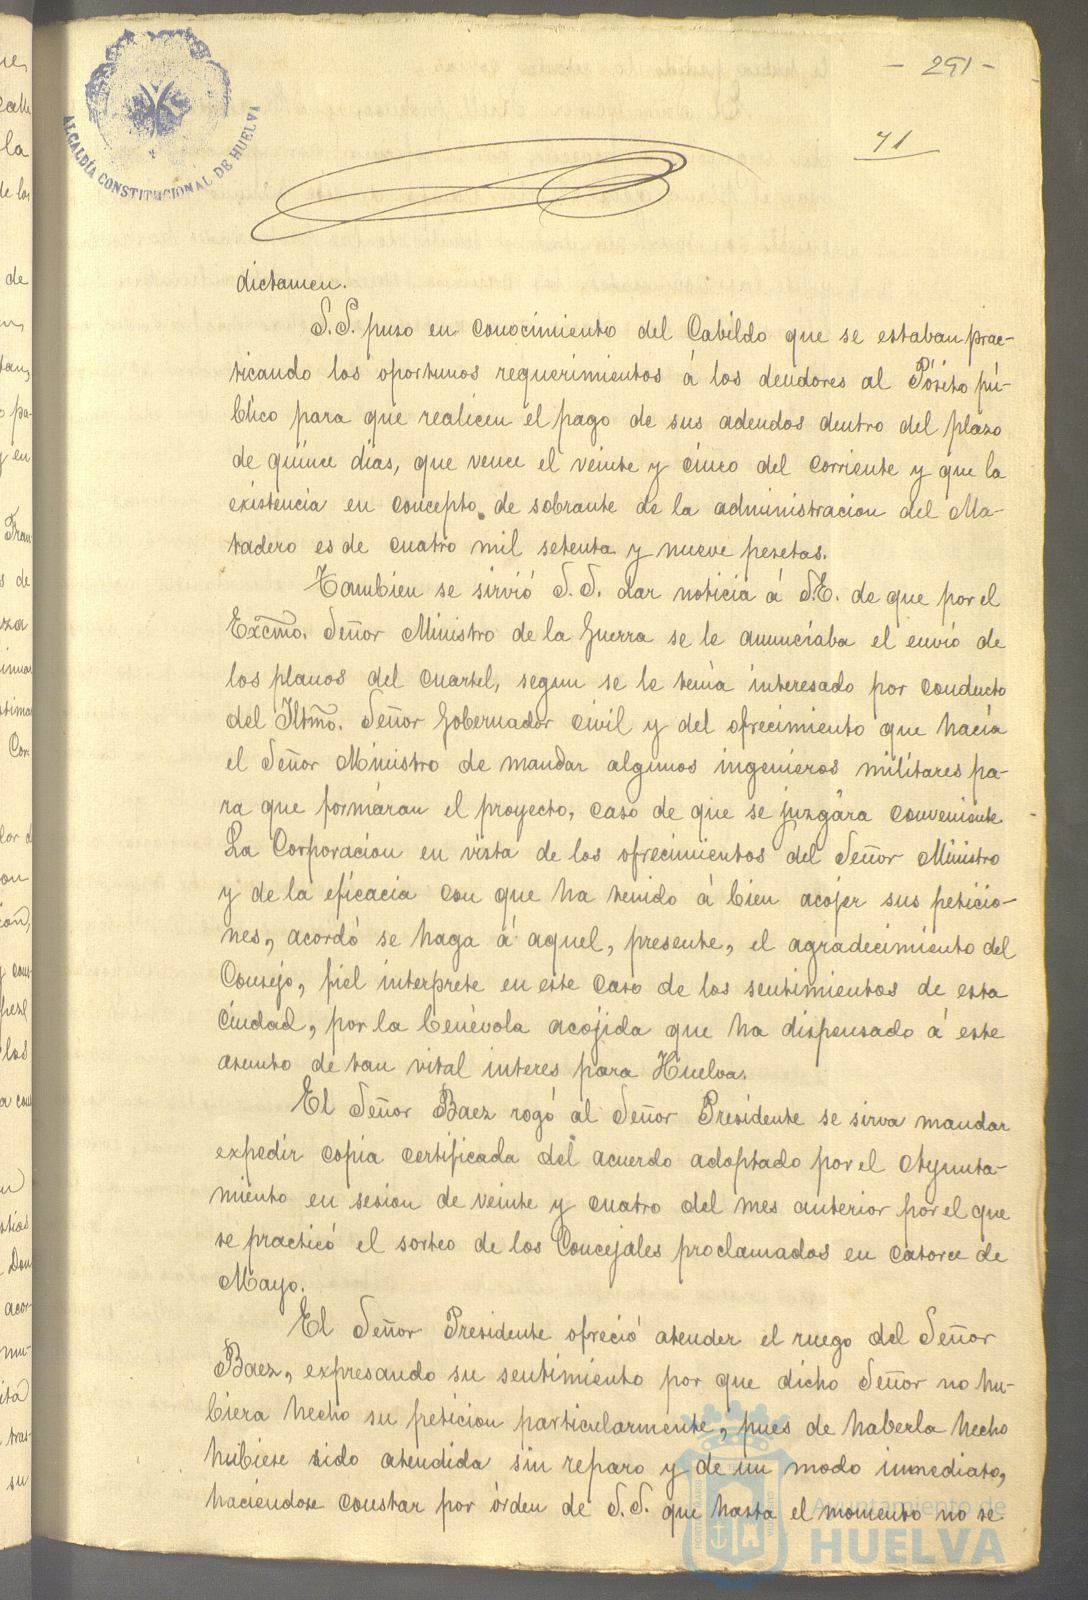 - 291 -
71
ALCALDÍA CONSTITUCIONAL DE HUELVA
dictamen.
S.S. puso en conocimiento del Cabildo que se estaban prac-
ticando los oportunos requerimientos á los deudores al Pósito pú-
blico para que realicen el pago de sus adeudos dentro del plazo
de quince dias, que vence el veinte y cinco del corriente y que la
existencia en concepto de sobrante de la administracion del Ma-
tadero es de cuatro mil setenta y nueve pesetas.
Tambien se sirvió S.S. dar noticia á S.E. de que por el
Excmo. Señor Ministro de la Guerra se le anunciaba el envio de
los planos del cuartel, segun se le tenia interesado por conducto
del Iltmo. Señor Gobernador civil y del ofrecimiento que hacia
el Señor Ministro de mandar algunos ingenieros militares pa-
ra que formáran el proyecto, caso de que se juzgára conveniente
La Corporacion en vista de los ofrecimientos del Señor Ministro
y de la eficacia con que ha tenido á bien acojer sus peticio-
nes, acordó se haga á aquel, presente, el agradecimiento del
Consejo, fiel interprete en este caso de los sentimientos de esta
Ciudad, por la benévola acojida que ha dispensado á este
asunto de tan vital interes para Huelva.
El Señor Baez rogó al Señor Presidente se sirva mandar
expedir copia certificada del acuerdo adoptado por el Ayunta-
miento en sesion de veinte y cuatro del mes anterior por el que
se practicó el sorteo de los Concejales proclamados en catorce de
Mayo.
El Señor Presidente ofreció atender el ruego del Señor
Baez, expresando su sentimiento por que dicho Señor no hu-
biera hecho su peticion particularmente, pues de haberla hecho
hubiese sido atendida sin reparo y de un modo inmediato,
haciendose constar por órden de S.S. que hasta el momento no se
Ayuntamiento de
HUELVA